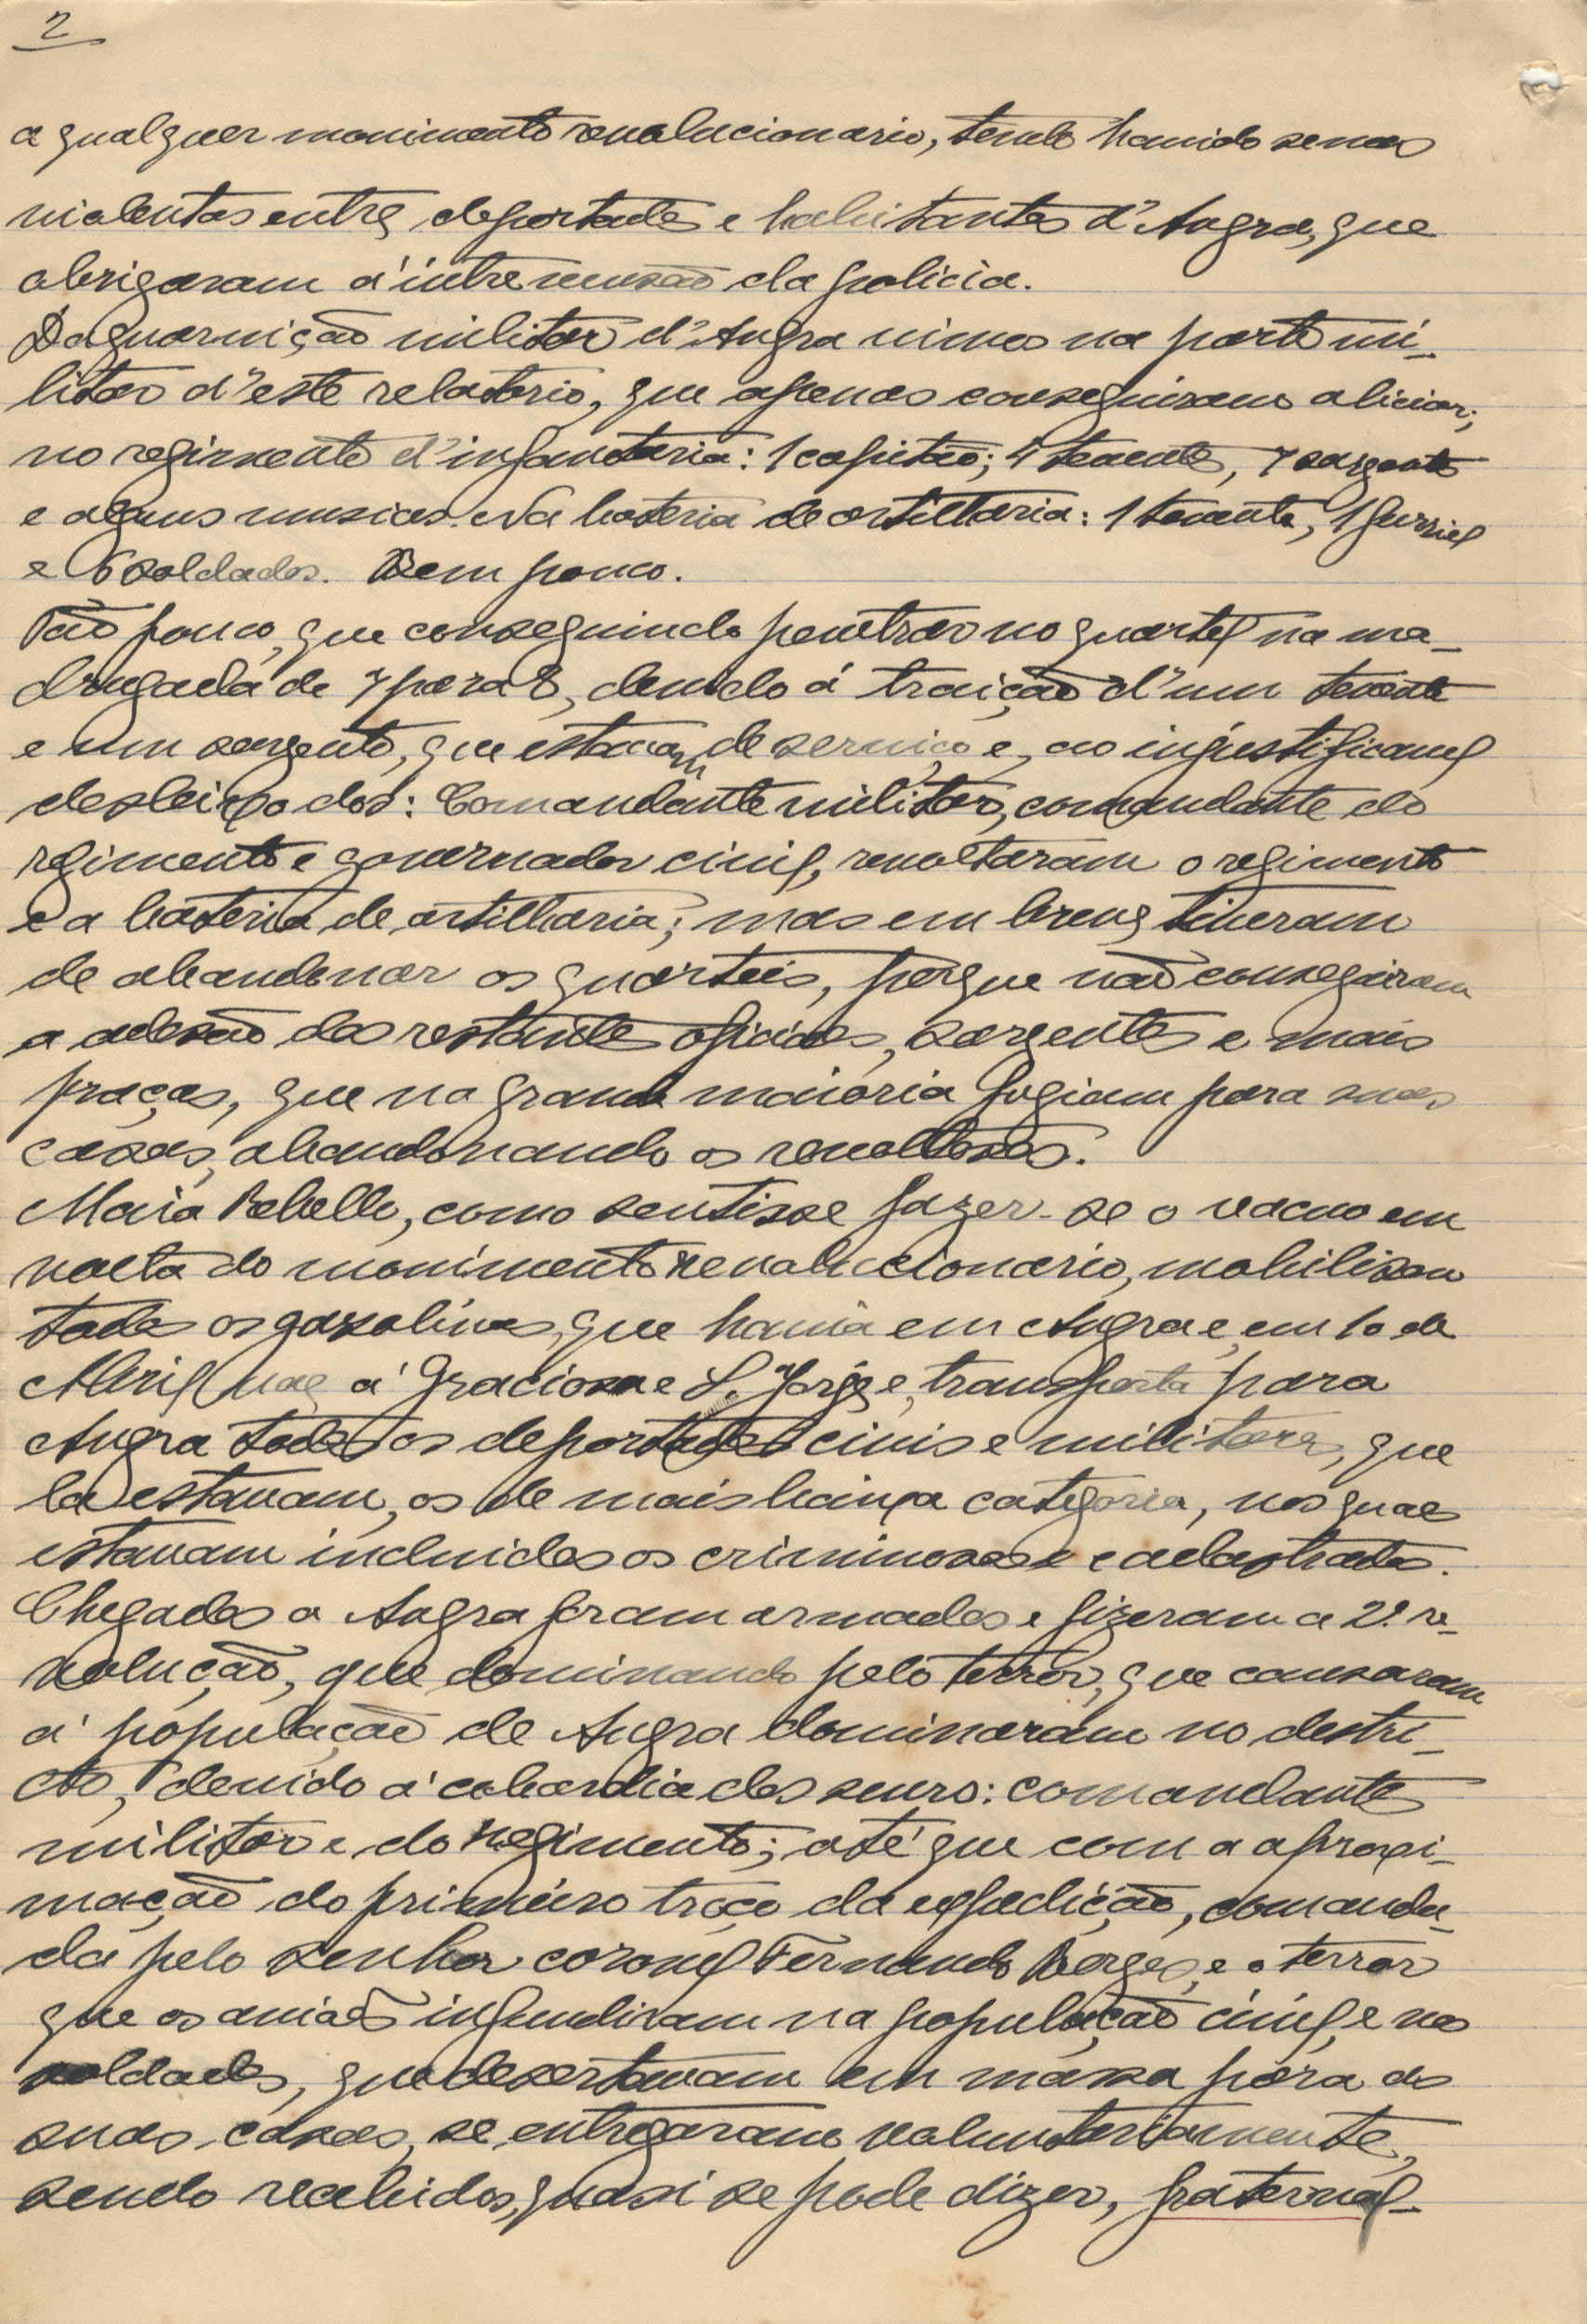 2
a qualquer movimento revolucionario, tendo havido scenas
violentas entre deportados e habitantes d'Angra, que
obrigaram á intrevensão da policia.
Da guarnição militar d'Angra vimos na parte mi-
litar d'este relatorio, que apenas conseguiram aliciar;
no regimento d'infantaria: 1 capitão; 4 tenentes, 7 sargentos
e alguns musicos. Na bateria de artilharia: 1 tenente, 1 furriel
e 6 soldados. Bem pouco.
Tão pouco, que conseguindo penetrar no quartel na ma-
drugada de 7 para 8, devido á traição d'um tenente
e um sargento, que estavam de serviço e, ao injustificavel
desleixo dos: Comandante militar, comandante do
regimento e governador civil, revoltaram o regimento
e a bateria de artilharia; mas em breve tiveram
de abandonar os quarteis, porque não conseguiram
a adesão dos restantes oficiaes, sargentos e mais
praças, que na grande maioria fugiam para suas
casas, abandonando os revoltosos.
Maia Rebello, como sentisse fazer-se o vacuo em
volta do movimento revolucionario, mobilisou
todos os gazolinas, que havia em Angra e, em 10 de
Abril vae á Graciosa e S. Jorge e, transporta para
Angra todos os deportados civis e militares, que
lá estavam, os de mais baixa categoria, nos quaes
estavam incluidos os criminosos e cadastrados.
Chegados a Angra foram armados e fizeram a 2ª re-
volução, que dominando pelo terror, que causaram
á população de Angra dominaram no destri-
cto, devido á cobardia dos snrs: comandante
militar e do regimento; até que com a aproxi-
mação do primeiro troço da expedição, comanda-
da pelo senhor coronel Fernando Borges, e o terror
que os aviões infundiram na população civil, e nos
soldados, que desertavam em massa para as
suas casas, se entregaram voluntariamente,
sendo recebidos, quasi se pode dizer, fraternal-